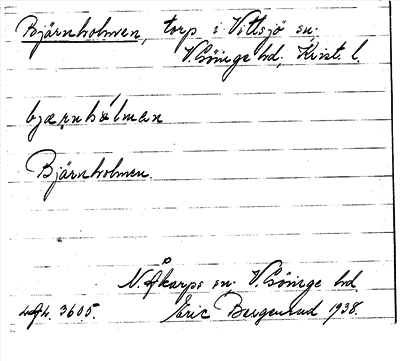 Bjärnholmen, torp i Vittsjö sn.
V. Göinge hd, Krist. l.
bjærnhålmen
Bjärnholmen.
N. Åkarps sn. V. Göinge hd
3605. Eric Bergenrud 1938.